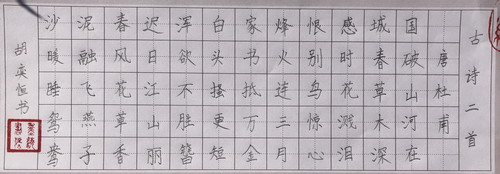 古诗二首
唐杜甫
国破山河在
城春草木深
感时花溅泪
恨别鸟惊心
烽火连三月
家书抵万金
白头搔更短
浑欲不胜簪
迟日江山丽
春风花草香
泥融飞燕子
沙暖睡鸳鸯
胡奕恒书